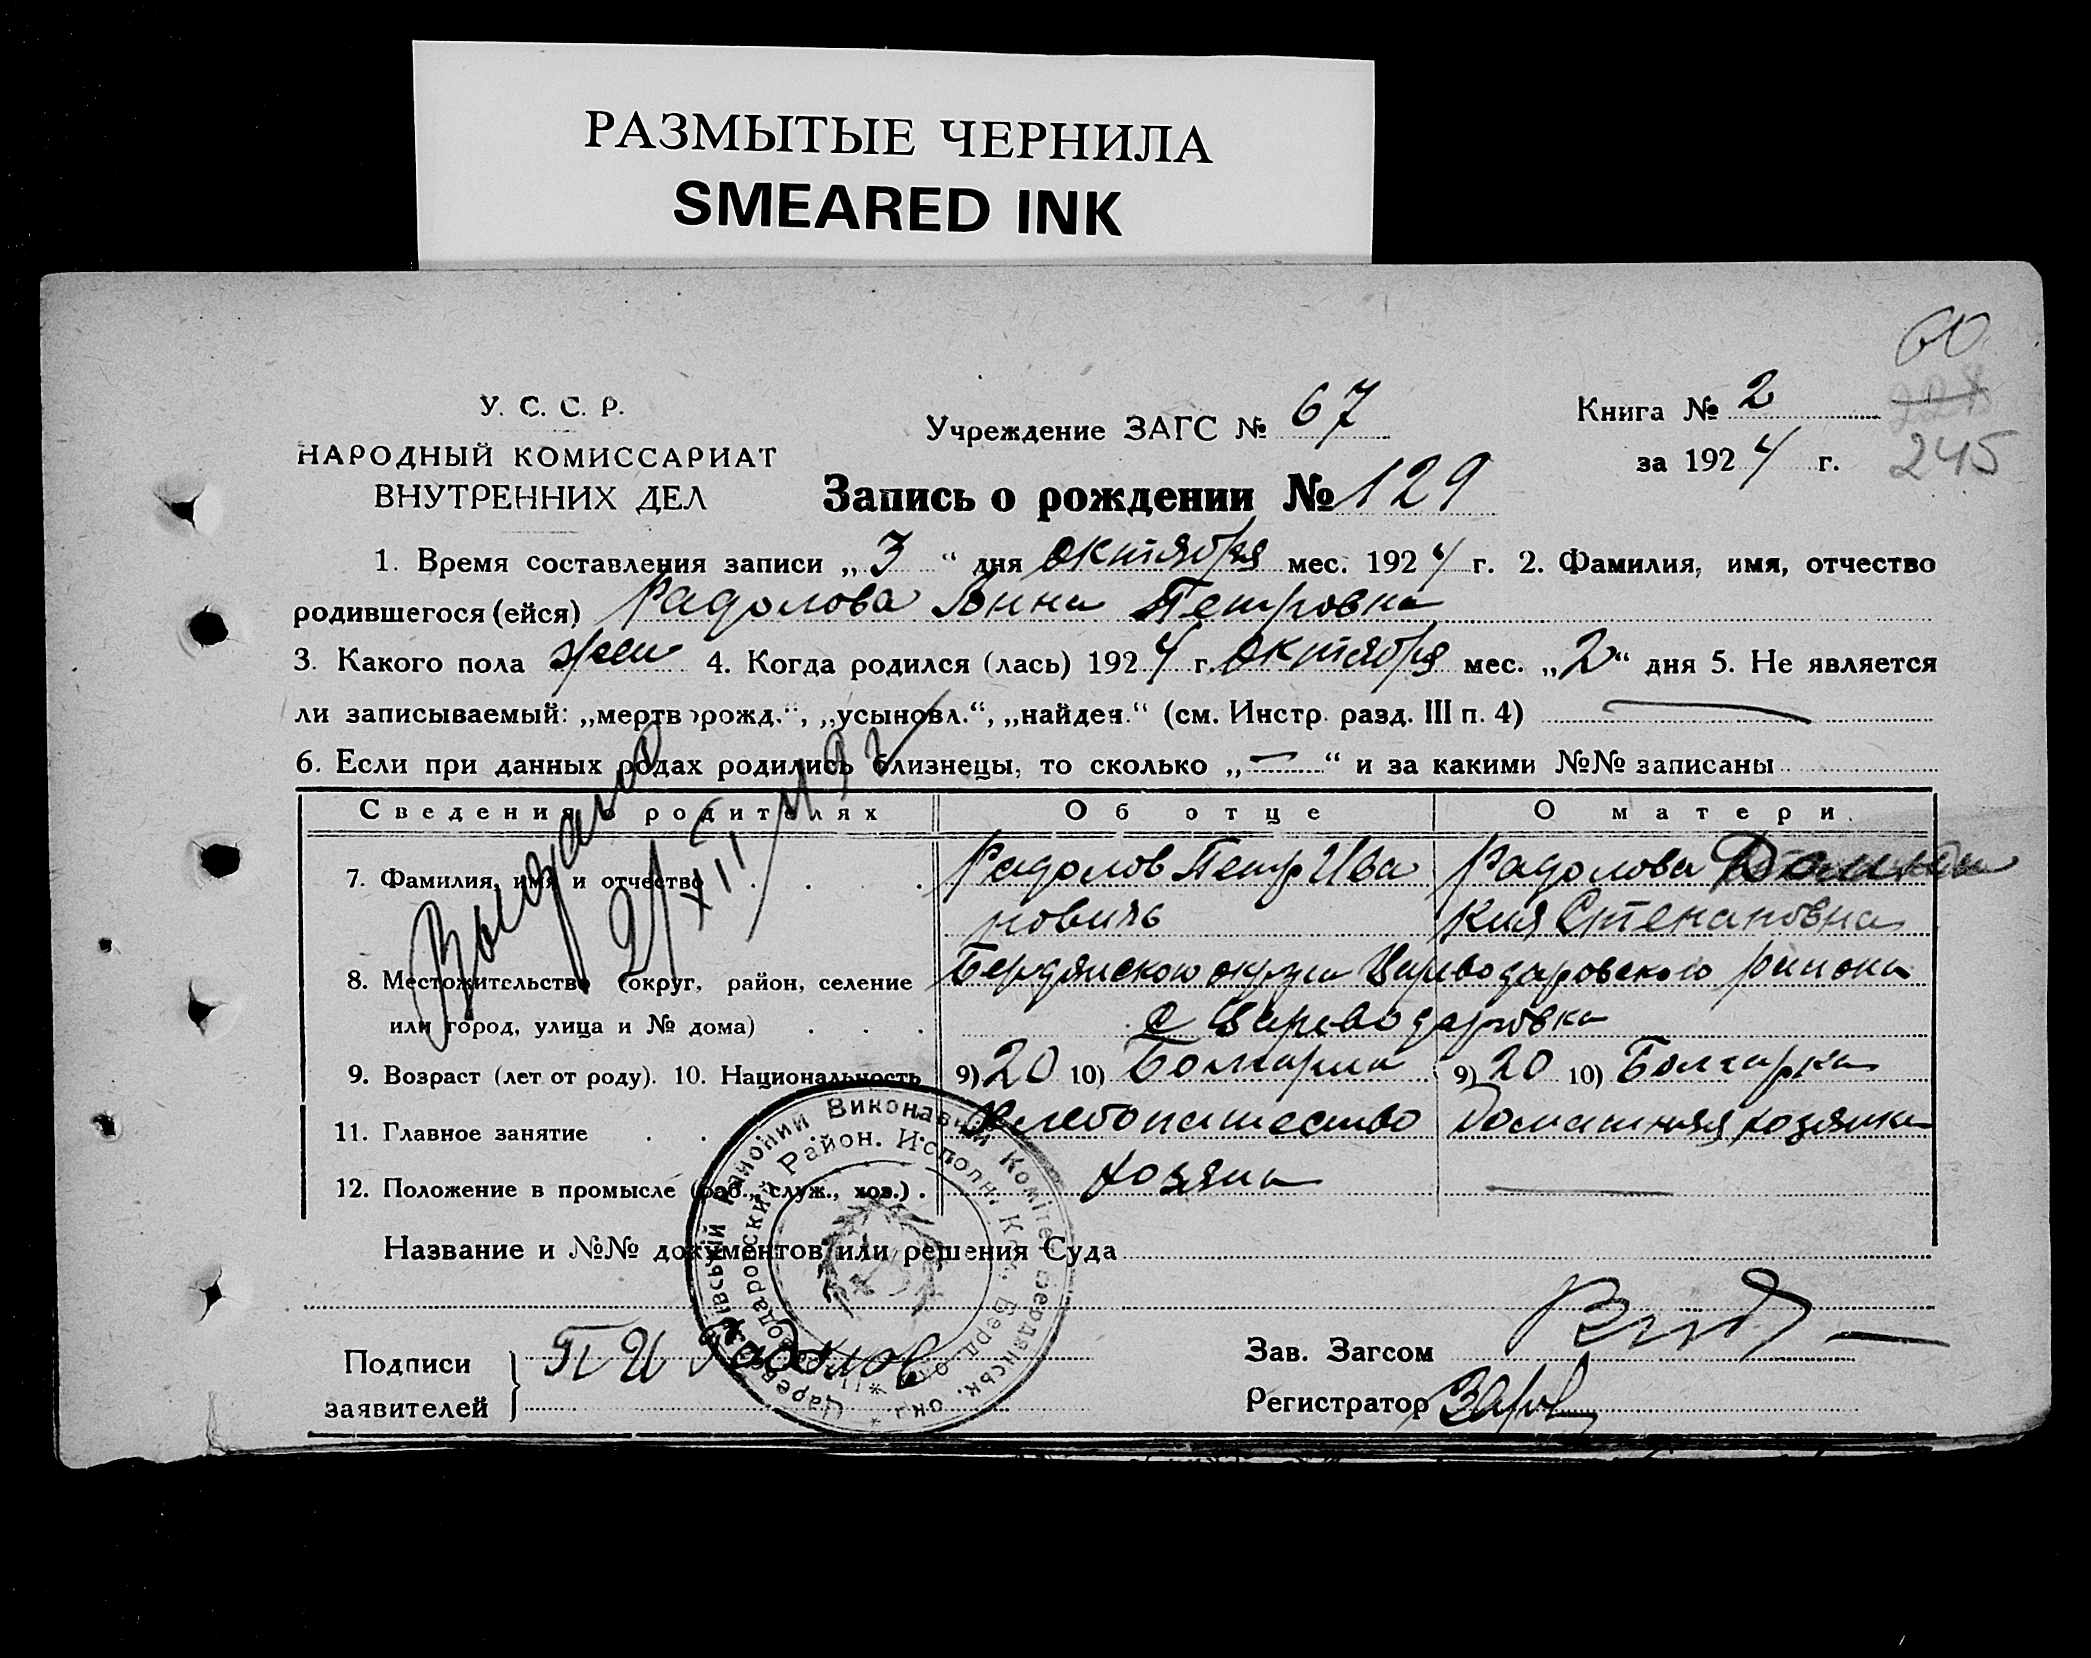 РАЗМЫТЫЕ ЧЕРНИЛА
SMEARED INK
60
У. С. С. Р.
НАРОДНЫЙ КОМИССАРИАТ
ВНУТРЕННИХ ДЕЛ
Учреждение ЗАГС № 67
Книга № 2
за 1924 г.
245
Запись о рождении № 129
1. Время составления записи „3“ дня октября мес. 1924 г. 2. Фамилия, имя, отчество
родившегося (ейся) Радолова Анна Петровна
3. Какого пола жен 4. Когда родился (лась) 1924 г. октября мес. „2“ дня 5. Не является
ли записываемый: „мертворожд.“, „усыновл.“, „найден.“ (см. Инстр. разд. III п. 4) —
6. Если при данных родах родились близнецы, то сколько „—“ и за какими №№ записаны
Сведения о родителях Об отце О матери
7. Фамилия, имя и отчество Радолов Петр Ива Радолова
новичь кия Степановна
8. Местожительство (округ, район, селение Бердянского округа Цареводаровского района
или город, улица и № дома) с Цареводаровка
9. Возраст (лет от роду). 10. Национальность 9) 20 10) Болгарин 9) 20 10) Болгарка
11. Главное занятие Хлебопашество Домашняя хозяйка
12. Положение в промысле (раб., служ., хоз.) хозяин —
Выдано
Название и №№ документов или решения Суда
Подписи
заявителей
П И Радолов
Зав. Загсом
Регистратор